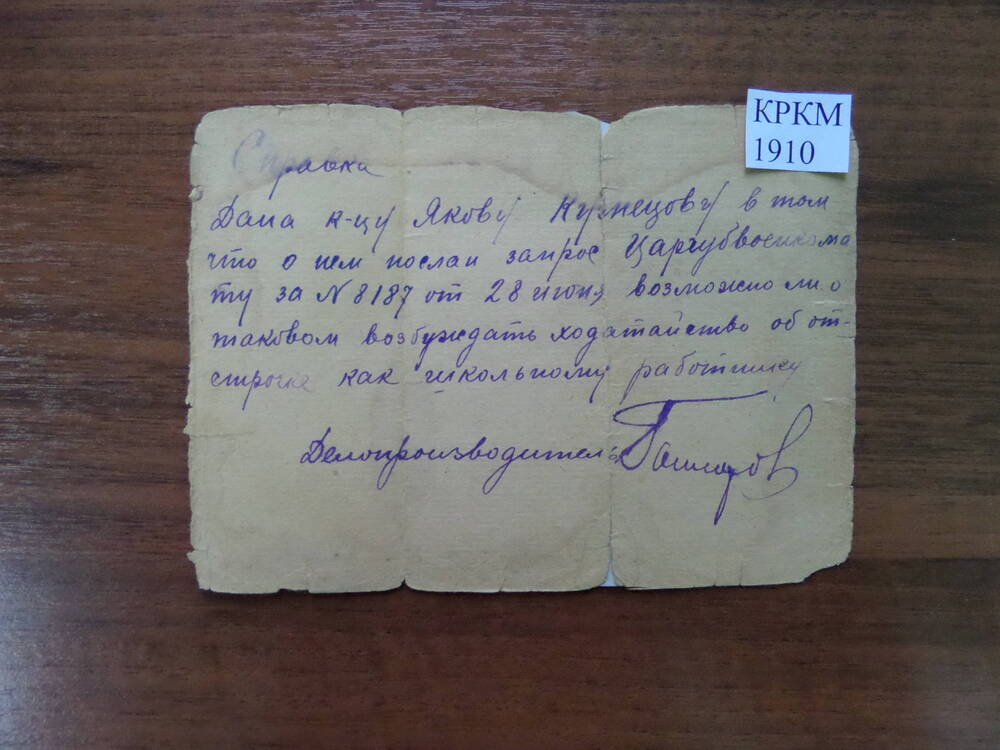 КРКМ
1910
Справка
Дана к-цу Якову Кузнецову в том
что о нем послан запрос Царгубвоенкома
ту за № 8187 от 28 июня возможно ли о
таковом возбуждать ходатайство об от-
строчке как школьному работнику
Делопроизводитель